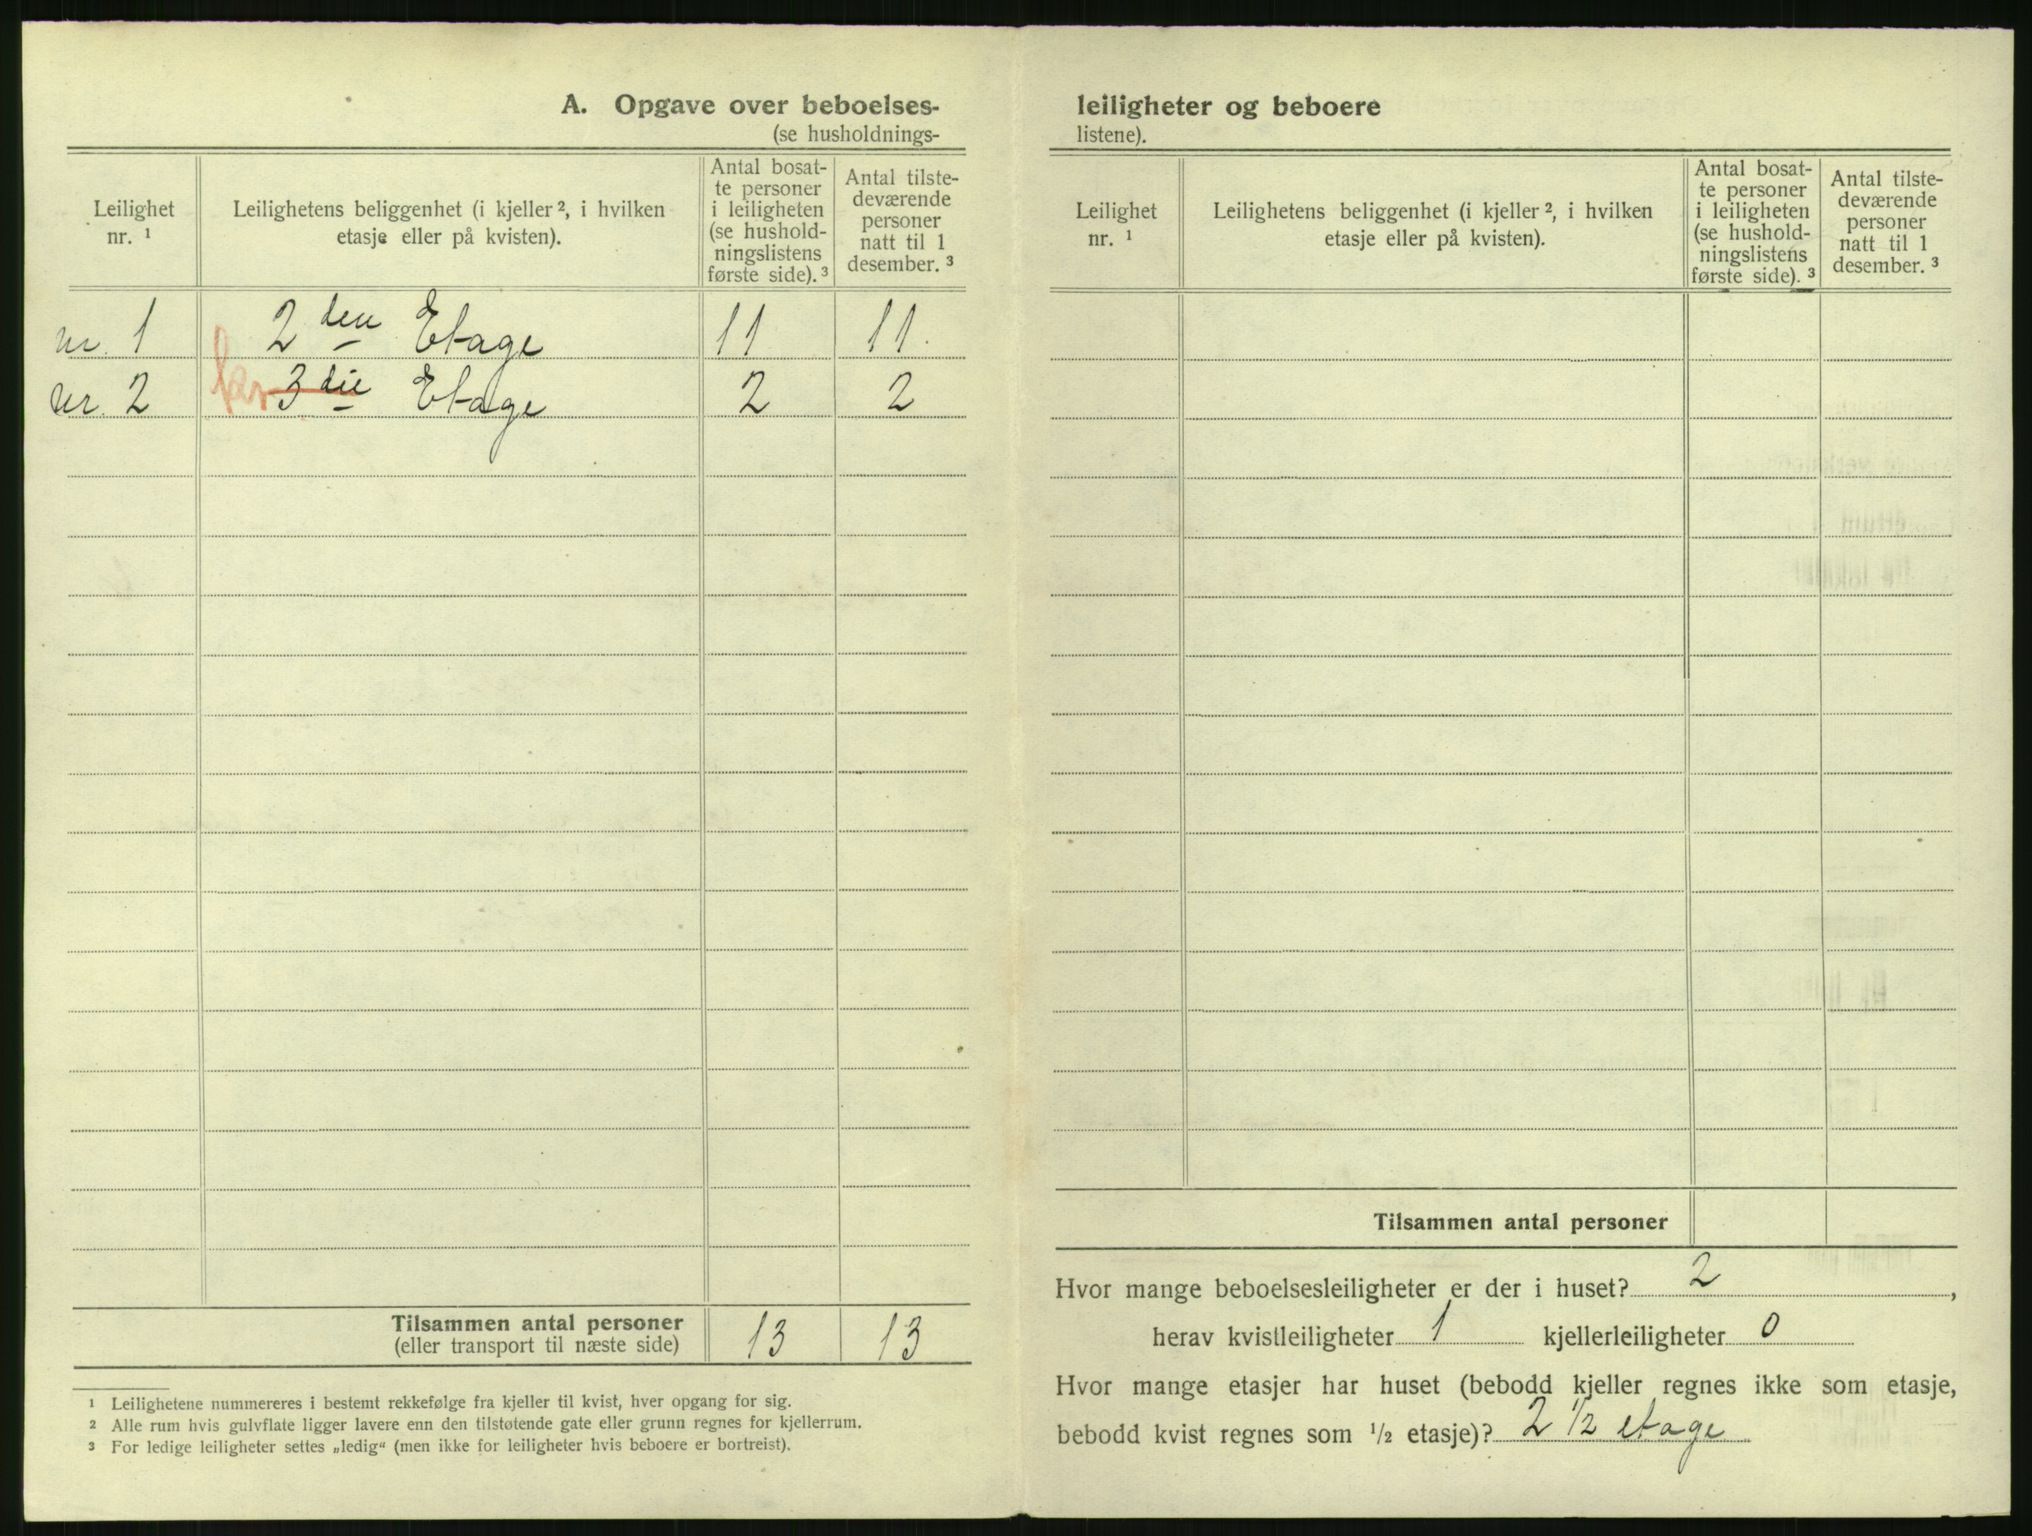 A. Opgave over beboelses-
(se husholdnings-
Leilighet nr. ¹
Leilighetens beliggenhet (i kjeller ², i hvilken etasje eller på kvisten).
Antal bosat-
te personer
i leiligheten
(se hushold-
ningslistens
første side). ³
Antal tilste-
deværende
personer
natt til 1
desember. ³
nr. 1 2 den Etage 11 11
nr. 2 3 die Etage 2 2
Tilsammen antal personer 13 13
(eller transport til næste side)
¹ Leilighetene nummereres i bestemt rekkefølge fra kjeller til kvist, hver opgang for sig.
² Alle rum hvis gulvflate ligger lavere enn den tilstøtende gate eller grunn regnes for kjellerrum.
³ For ledige leiligheter settes „ledig“ (men ikke for leiligheter hvis beboere er bortreist).
leiligheter og beboere
listene).
Leilighet nr. ¹
Leilighetens beliggenhet (i kjeller ², i hvilken etasje eller på kvisten).
Antal bosat-
te personer
i leiligheten
(se hushold-
ningslistens
første side). ³
Antal tilste-
deværende
personer
natt til 1
desember. ³
Tilsammen antal personer
Hvor mange beboelsesleiligheter er der i huset? 2,
herav kvistleiligheter 1 kjellerleiligheter 0
Hvor mange etasjer har huset (bebodd kjeller regnes ikke som etasje,
bebodd kvist regnes som ½ etasje)? 2 ½ etage